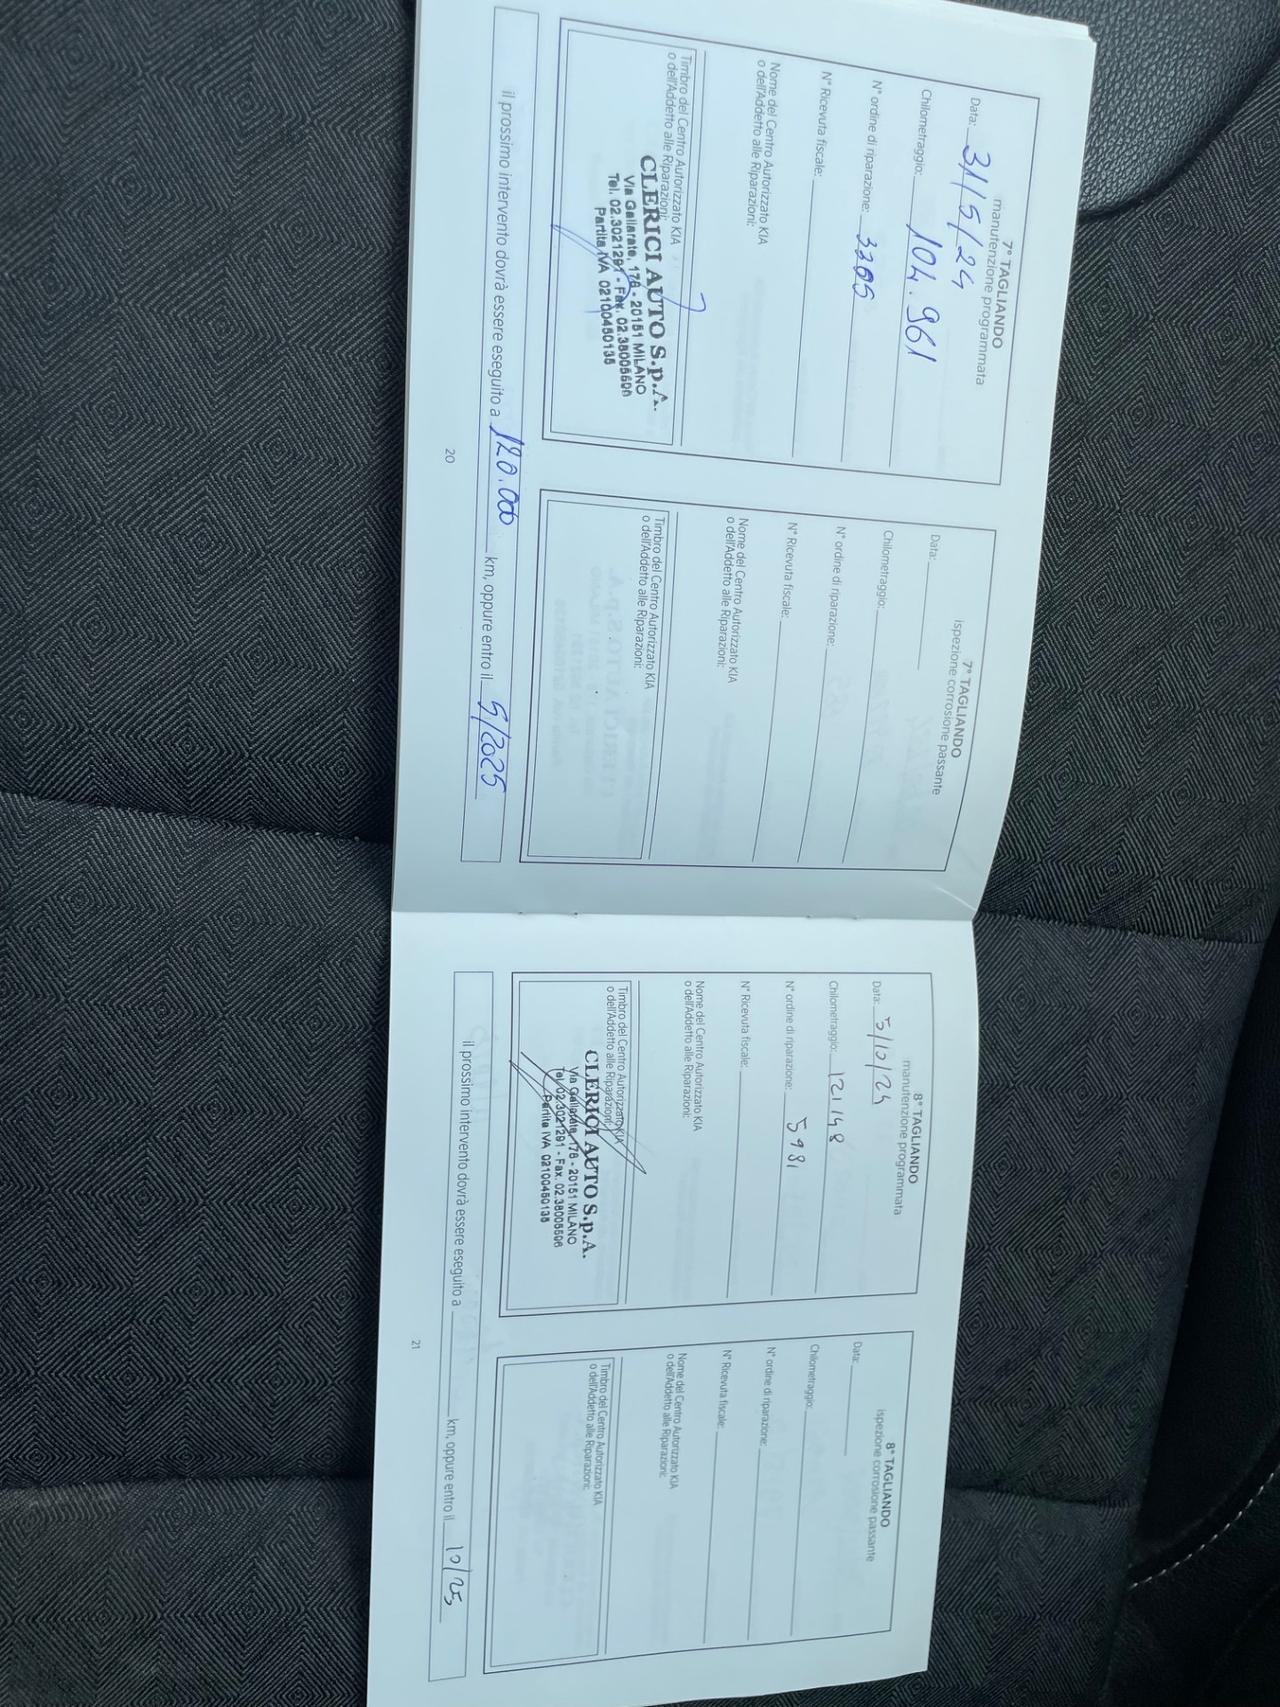 7° TAGLIANDO
manutenzione programmata
Data: 31/5/24
Chilometraggio: 104.961
N° ordine di riparazione: 3305
N° Ricevuta fiscale:
Nome del Centro Autorizzato KIA
o dell'Addetto alle Riparazioni:
Timbro del Centro Autorizzato KIA
o dell'Addetto alle Riparazioni:
CLERICI AUTO S.p.A.
Via Gallarate, 176 - 20151 MILANO
Tel. 02.3021291 - Fax. 02.38005506
Partita IVA 02100450135
7° TAGLIANDO
ispezione corrosione passante
Data:
Chilometraggio:
N° ordine di riparazione:
N° Ricevuta fiscale:
Nome del Centro Autorizzato KIA
o dell'Addetto alle Riparazioni:
Timbro del Centro Autorizzato KIA
o dell'Addetto alle Riparazioni:
il prossimo intervento dovrà essere eseguito a 120.000 km, oppure entro il 5/2025
20
8° TAGLIANDO
manutenzione programmata
Data: 5/10/24
Chilometraggio: 121148
N° ordine di riparazione: 5981
N° Ricevuta fiscale:
Nome del Centro Autorizzato KIA
o dell'Addetto alle Riparazioni:
Timbro del Centro Autorizzato KIA
o dell'Addetto alle Riparazioni:
CLERICI AUTO S.p.A.
Via Gallarate, 176 - 20151 MILANO
Tel. 02.3021291 - Fax. 02.38005506
Partita IVA 02100450135
8° TAGLIANDO
ispezione corrosione passante
Data:
Chilometraggio:
N° ordine di riparazione:
N° Ricevuta fiscale:
Nome del Centro Autorizzato KIA
o dell'Addetto alle Riparazioni:
Timbro del Centro Autorizzato KIA
o dell'Addetto alle Riparazioni:
il prossimo intervento dovrà essere eseguito a km, oppure entro il 10/25
21